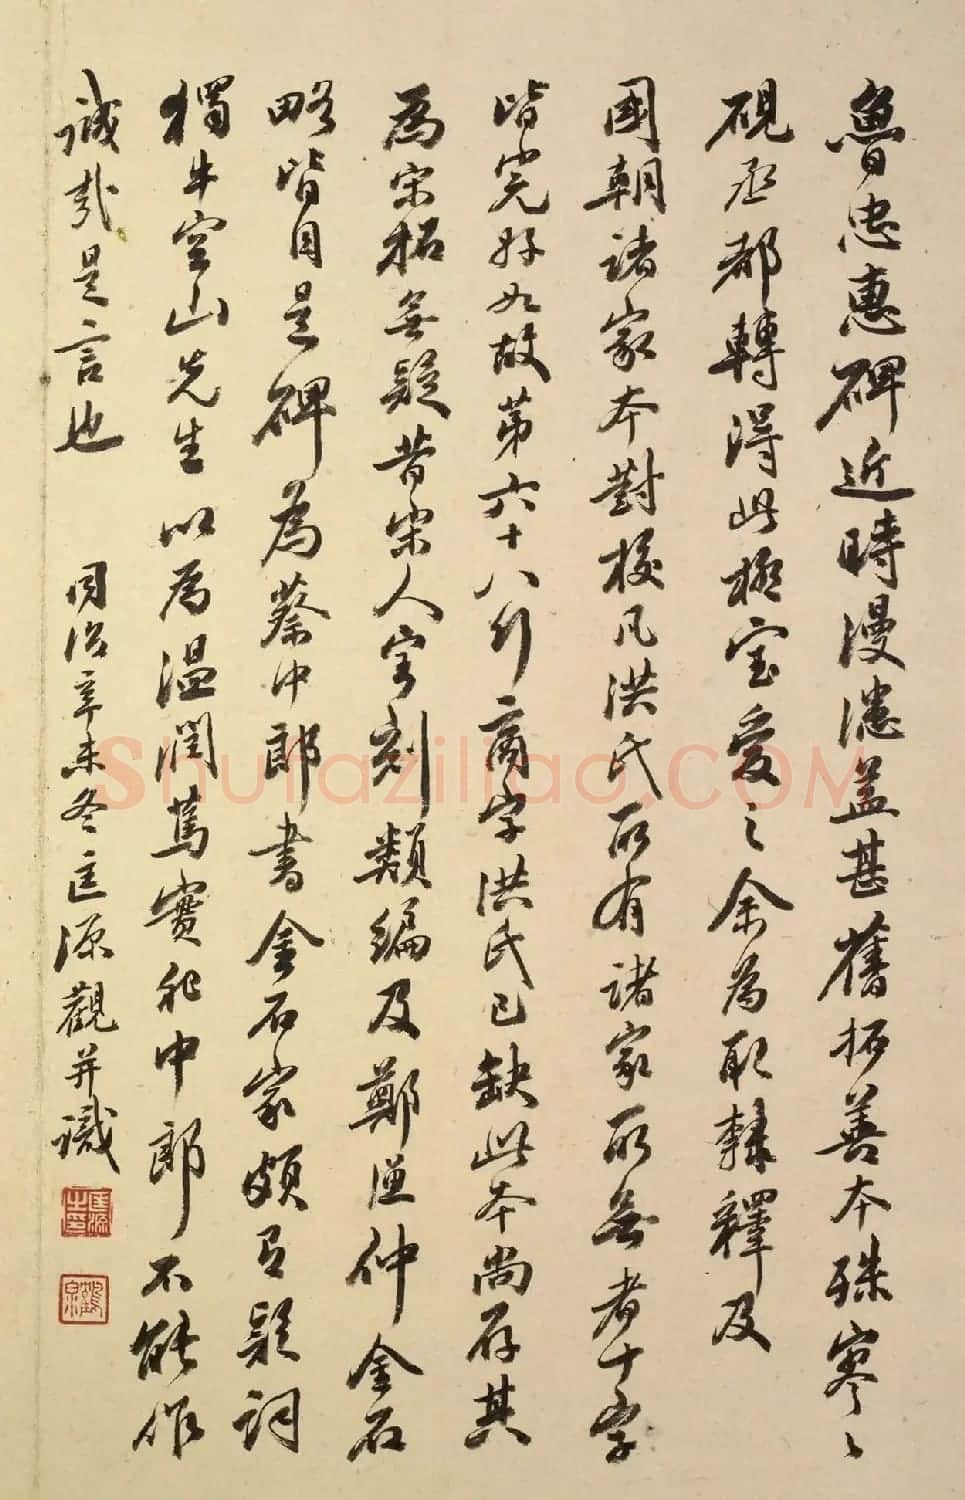 魯忠惠碑近時漫漶益甚舊拓善本殊寥〻
硯丞都轉得此極宝愛之余為取隸釋及
國朝諸家本對校凡洪氏所有諸家所無者十字
皆完好如故第六十八行商字洪氏已缺此本尚存其
為宋拓無疑昔宋人宝刻類編及鄭漁仲金石
略皆目是碑為蔡中郎書金石家頗有疑詞
獨牛空山先生以為溫潤篤實非中郎不能作
誠哉是言也
同治辛未冬匡源觀并識
匡源之印
鶴泉
ShufaZiliao.COM